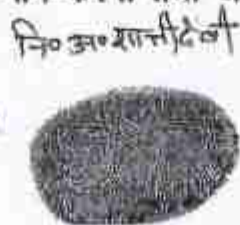 नि०अ०शान्तीदेवी